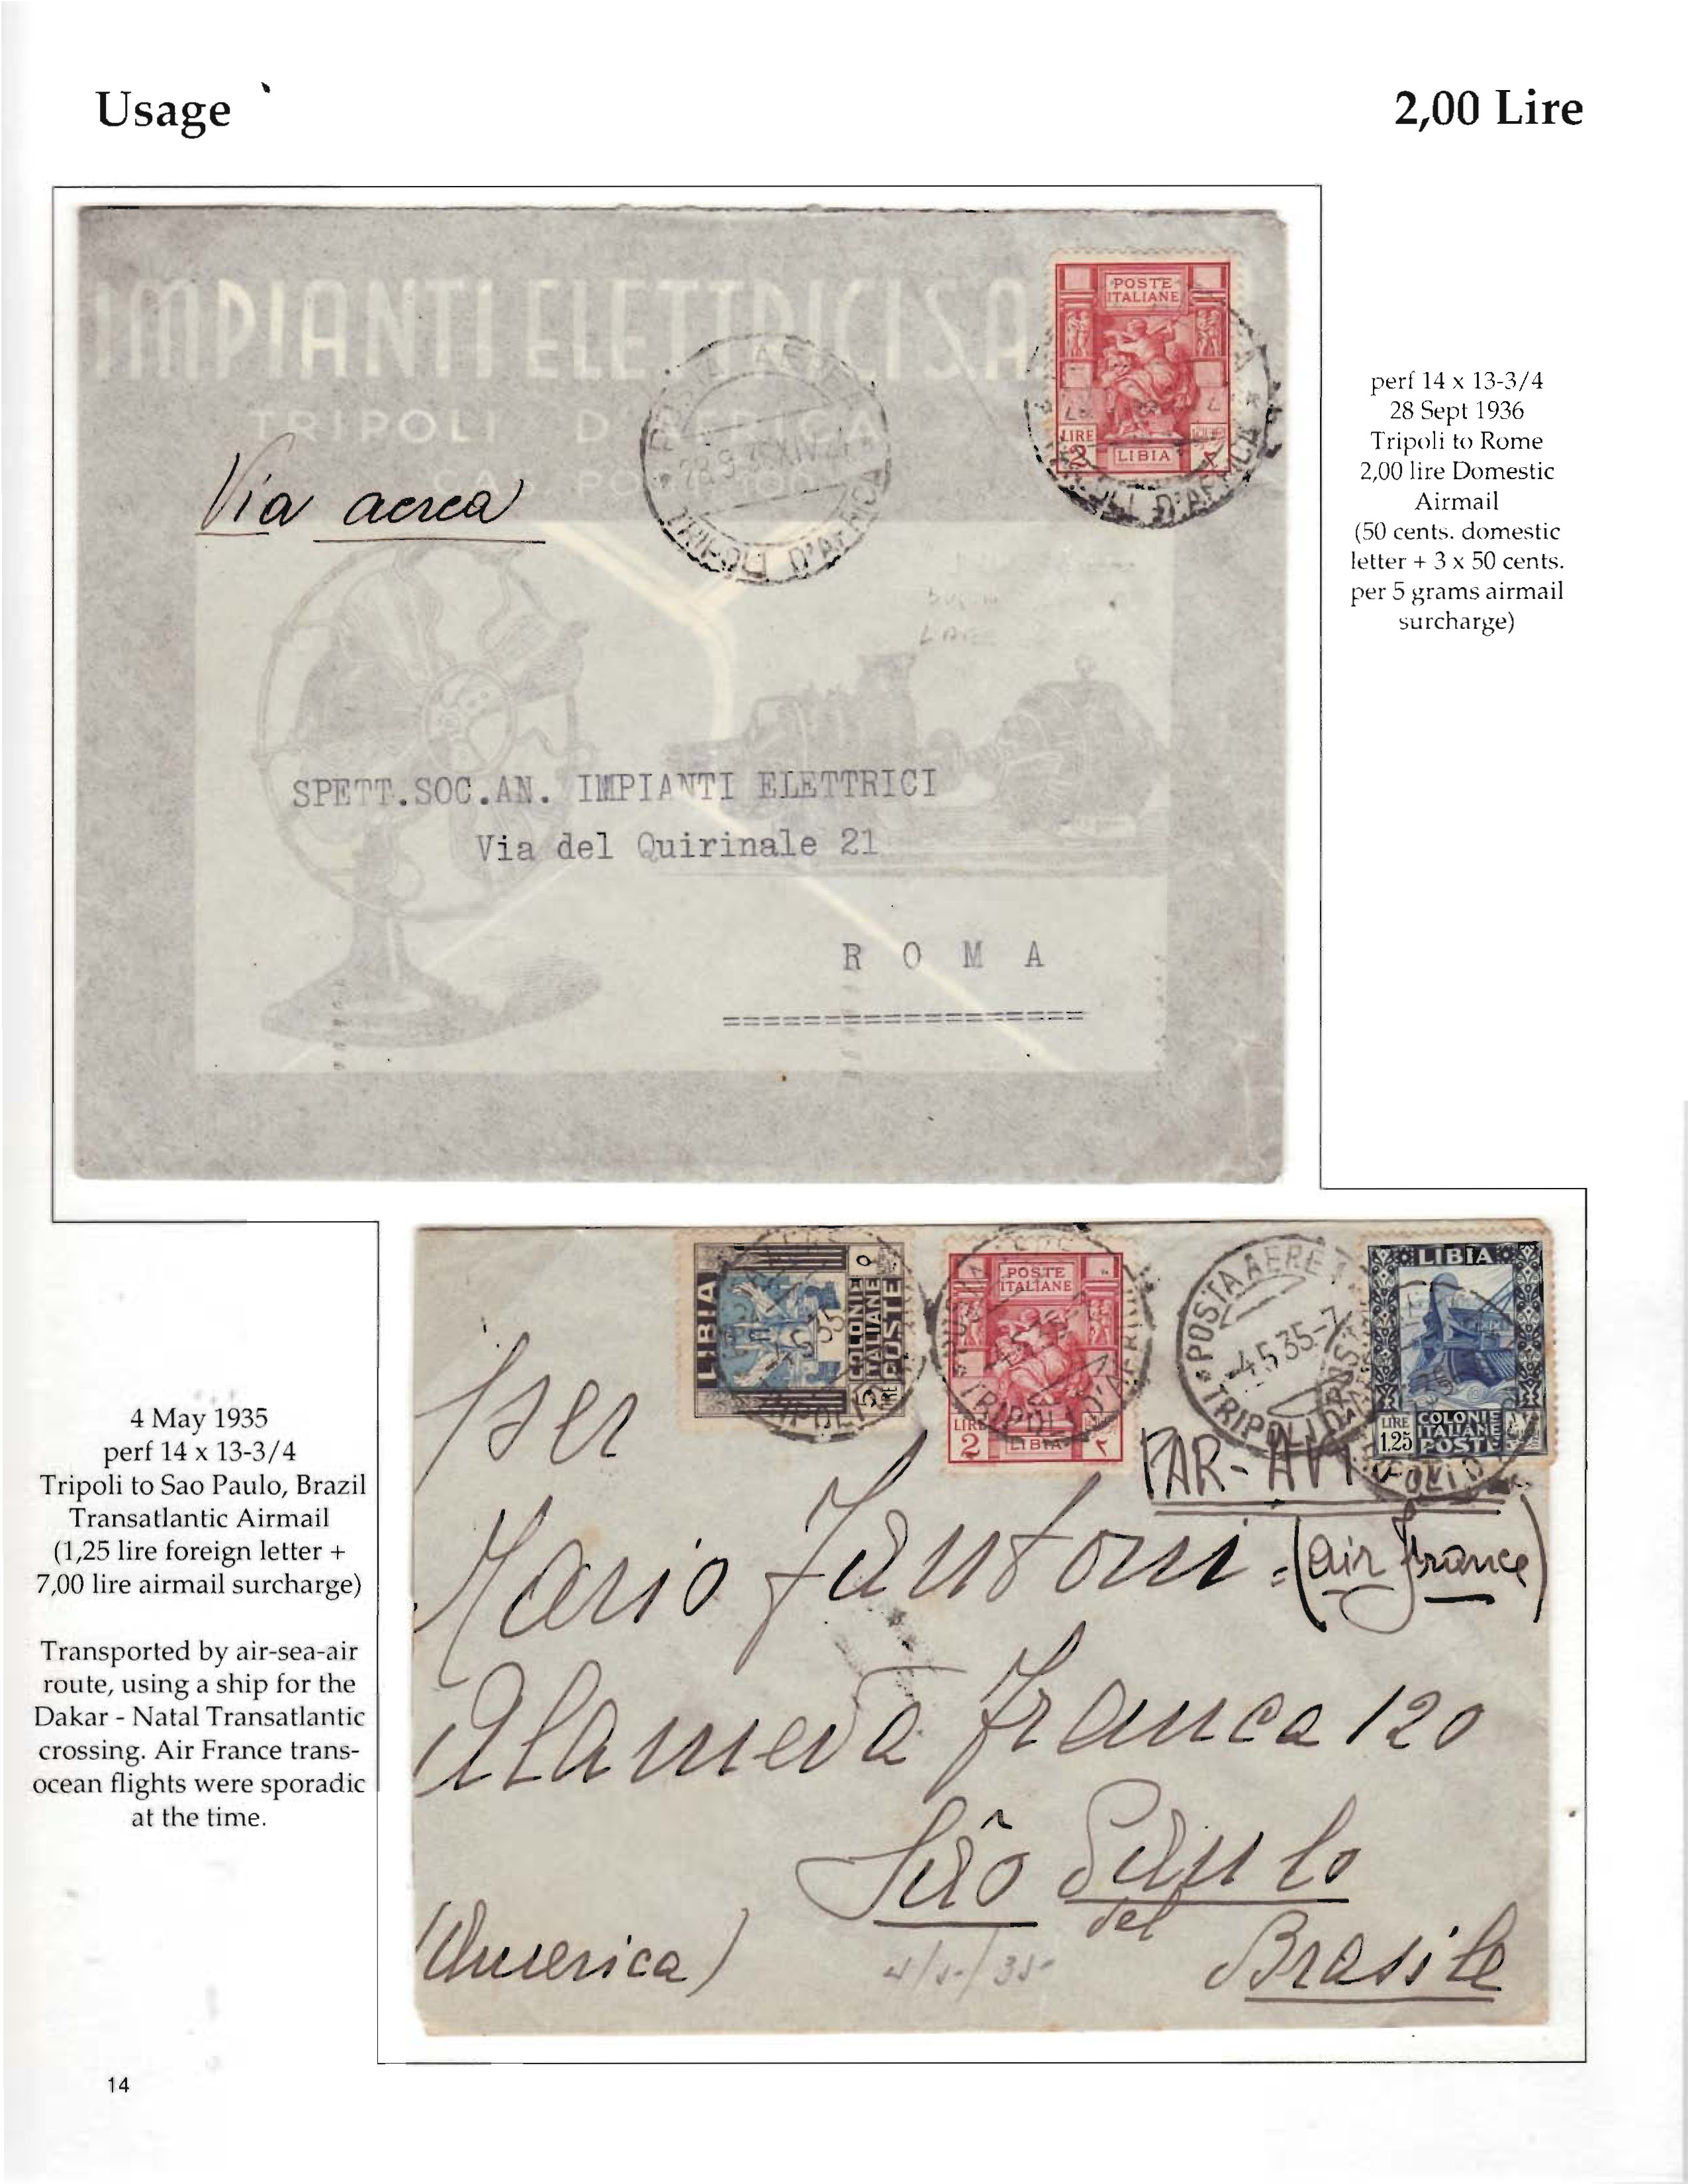 Usage
2,00 Lire
IMPIANTI ELETTRICI S.A.
TRIPOLI D'AFRICA
Via aerea
POSTA AEREA
28.9.36 XIV
TRIPOLI D'AFRICA
POSTE
ITALIANE
LIRE
2
LIBIA
٢
TRIPOLI D'AFRICA
SPETT.SOC.AN. IMPIANTI ELETTRICI
Via del Quirinale 21
R O M A
==================
perf 14 x 13-3/4
28 Sept 1936
Tripoli to Rome
2,00 lire Domestic
Airmail
(50 cents. domestic
letter + 3 x 50 cents.
per 5 grams airmail
surcharge)
4 May 1935
perf 14 x 13-3/4
Tripoli to Sao Paulo, Brazil
Transatlantic Airmail
(1,25 lire foreign letter +
7,00 lire airmail surcharge)
Transported by air-sea-air
route, using a ship for the
Dakar - Natal Transatlantic
crossing. Air France trans-
ocean flights were sporadic
at the time.
LIBIA
COLONIE
ITALIANE
POSTE
5
LIRE
٥
POSTE
ITALIANE
LIRE
2
LIBIA
٢
TRIPOLI D'AFRICA
POSTA AEREA
-4.5.35-7
TRIPOLI D'AFRICA
LIBIA
LIRE
1.25
COLONIE
ITALIANE
POSTE
Per
PAR-AVI
Mario Fantoni = (air france)
Alameda Franca 120
São Paulo
del
(America)
4/5/35
Brasile
14